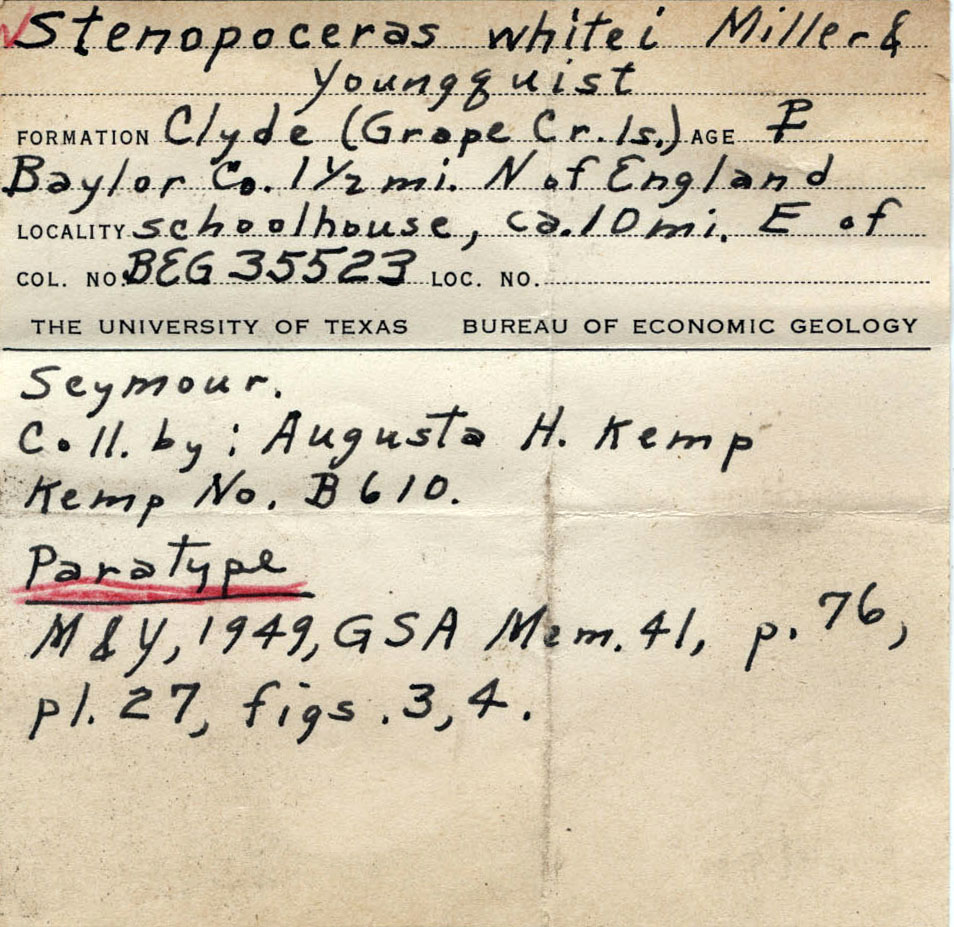 Stenopoceras whitei Miller &
Youngquist
FORMATION Clyde (Grape Cr. ls.) AGE P
Baylor Co. 1 1/2 mi. N of England
LOCALITY schoolhouse, ca. 10 mi. E of
COL. NO. BEG 35523 LOC. NO.
THE UNIVERSITY OF TEXAS BUREAU OF ECONOMIC GEOLOGY
Seymour.
Coll. by: Augusta H. Kemp
Kemp No. B610.
Paratype
M & Y, 1949, GSA Mem. 41, p. 76,
pl. 27, figs. 3, 4.